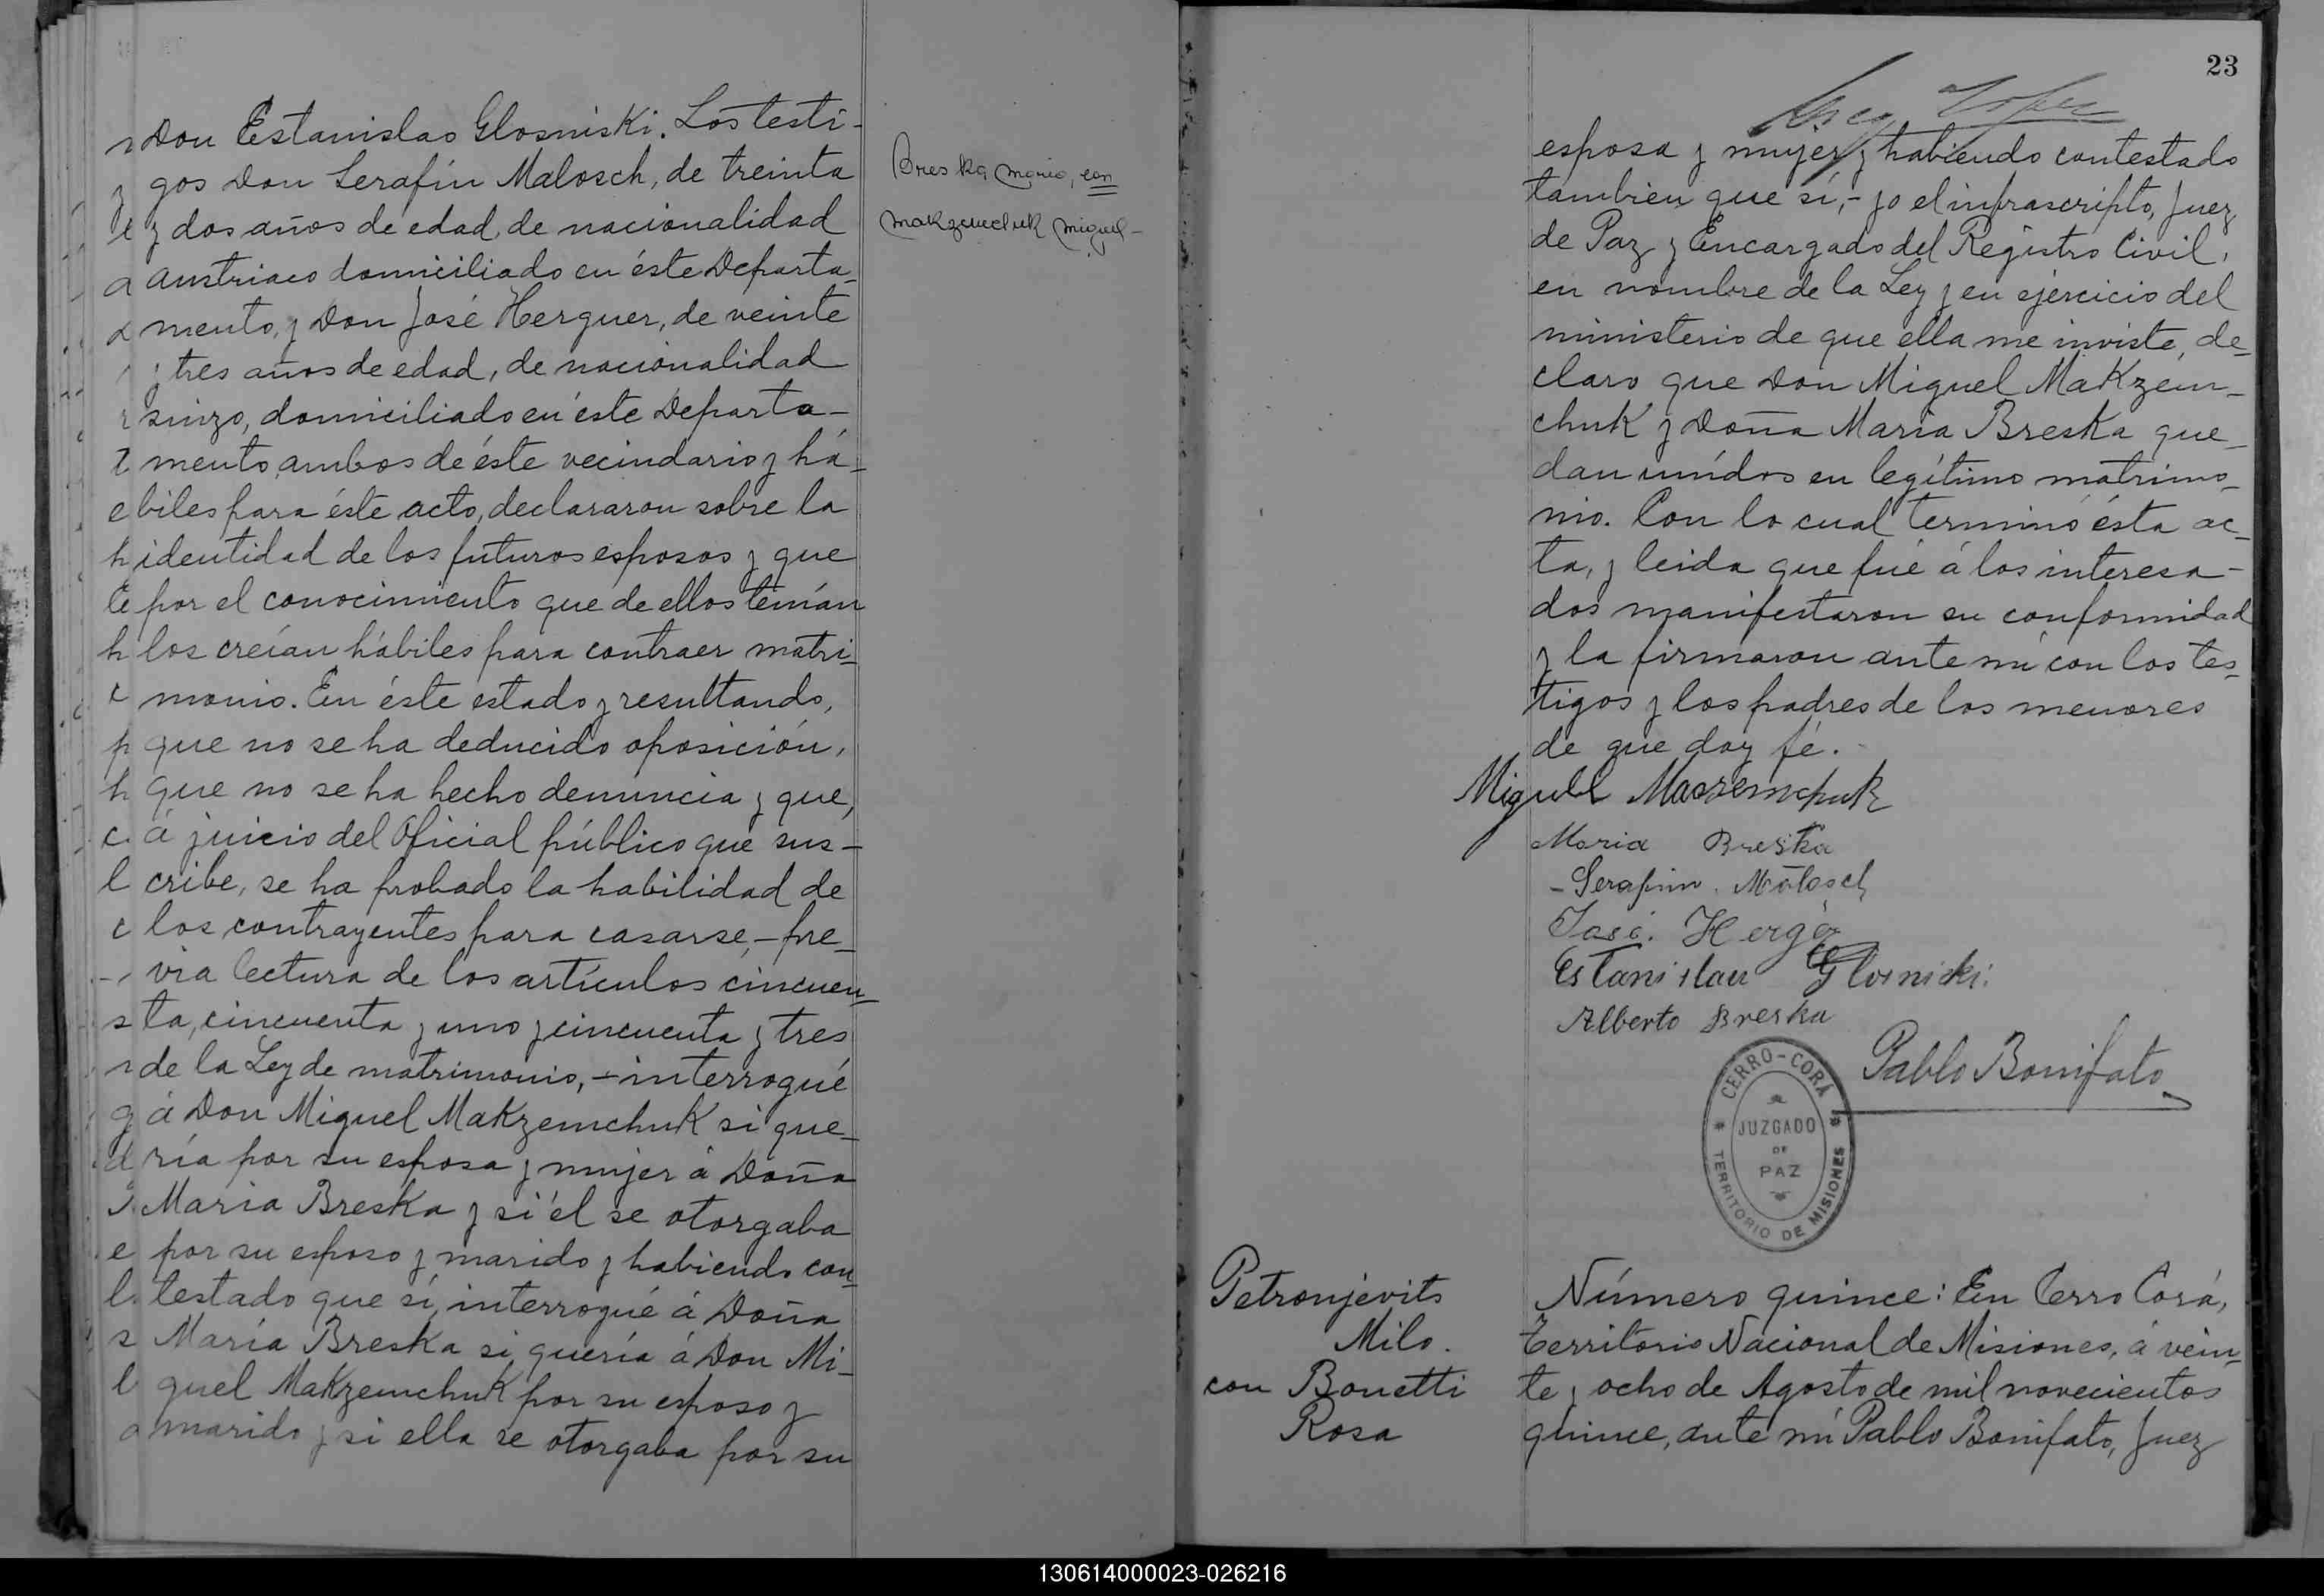 Don Estanislao Glosniski. Los testi-
gos Don Serafín Malosch, de treinta
y dos años de edad, de nacionalidad
austriaco domiciliado en éste Departa-
mento, y Don José Herguer, de veinte
y tres años de edad, de nacionalidad
suizo, domiciliado en éste Departa-
mento, ambos de éste vecindario y há-
biles para éste acto, declararon sobre la
identidad de los futuros esposos y que
por el conocimiento que de ellos tenían
los creían hábiles para contraer matri-
monio. En éste estado y resultando,
que no se ha deducido oposición,
que no se ha hecho denuncia y que,
á juicio del Oficial público que sus-
cribe, se ha probado la habilidad de
los contrayentes para casarse,- pre-
via lectura de los artículos cincuen-
ta, cincuenta y uno y cincuenta y tres
de la Ley de matrimonio,- interrogué
á Don Miguel MaKzemchuk si que-
ría por su esposa y mujer á Doña
María Breska y si él se otorgaba
por su esposo y marido y habiendo con-
testado que sí, interrogué á Doña
María Breska si quería á Don Mi-
guel MaKzemchuk por su esposo y
marido y si ella se otorgaba por su
Breska Maria, con
Makzemchuk Miguel-
23
esposa y mujer y habiendo contestado
tambien que sí,- yo el infrascripto, Juez
de Paz y Encargado del Registro Civil,
en nombre de la Ley y en ejercicio del
ministerio de que ella me inviste, de-
claro que Don Miguel MaKzem-
chuk y Doña María Breska que-
dan unídos en legítimo matrimo-
nio. Con lo cual terminó ésta ac-
ta, y leida que fué á los interesa-
dos manifestaron su conformidad
y la firmaron ante mí con los tes-
tigos y los padres de los menores
de que doy fé.
Miguel
Maria Breska
-Serafim. Malosch
José. Herger
Estanislau Glosnicki
Alberto Breska
Pablo Bonifato
CERRO-CORÁ
JUZGADO
DE
PAZ
TERRITORIO DE MISIONES
Petronjevits
Milo.
con Bonetti
Rosa
Número quince: En Cerro Corá,
Territorio Nacional de Misiones, á vein-
te y ocho de Agosto de mil novecientos
quince, ante mí Pablo Bonifato, Juez
130614000023-026216